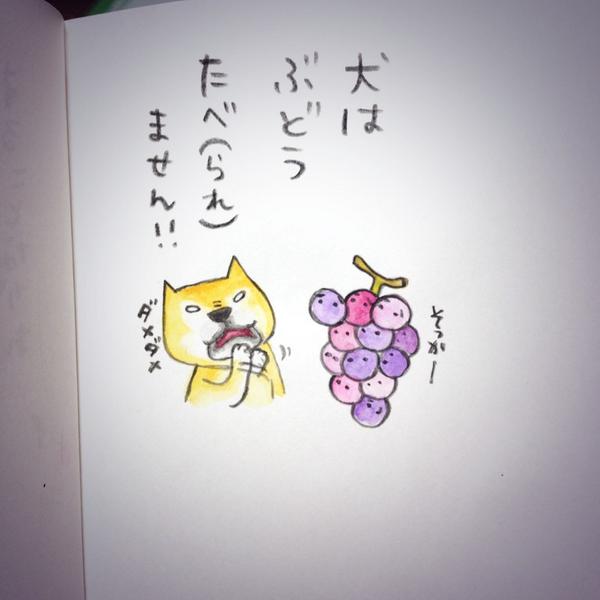 犬は
ぶどう
たべ(られ)
ません!!
ダメダメ
そっかー